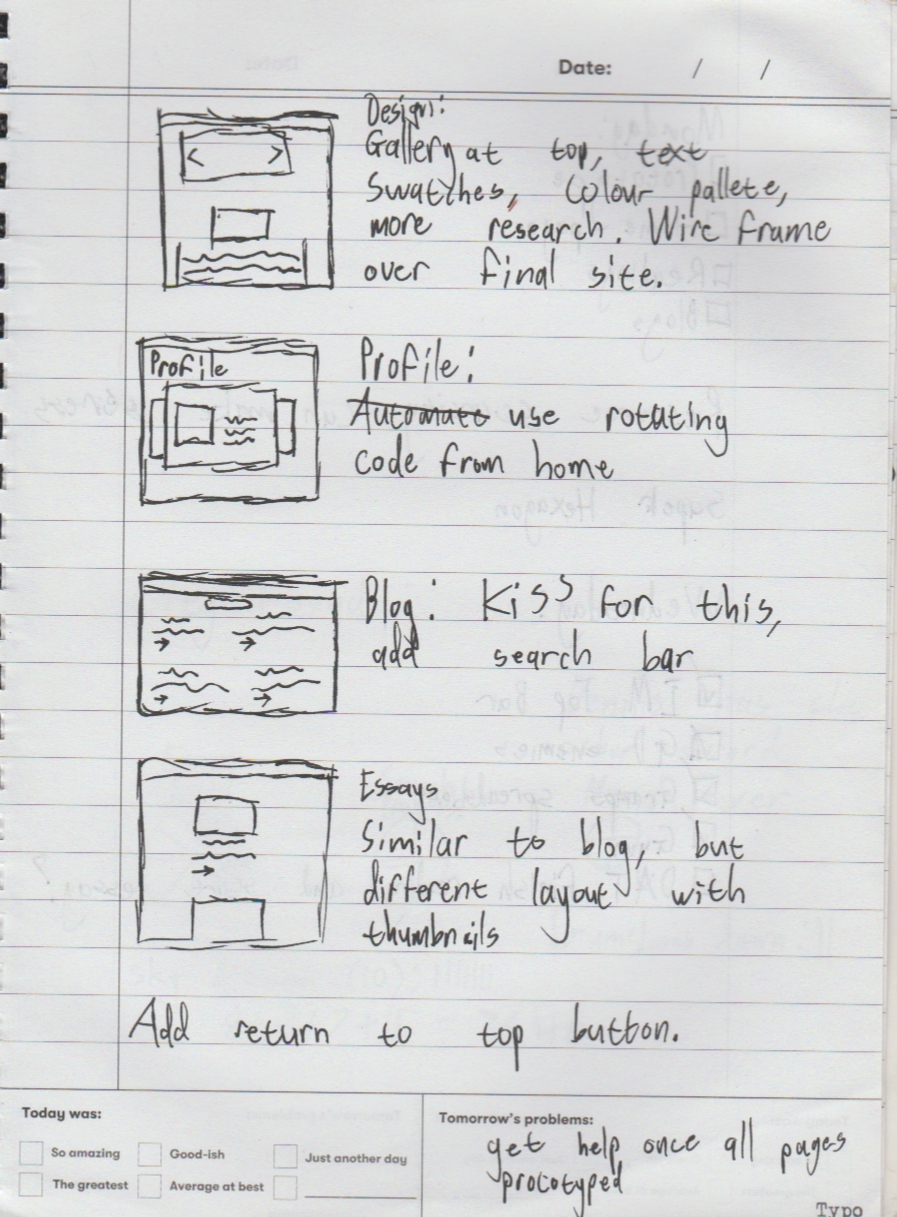 Date: / /
Design:
Gallery at top, text
Swatches, Colour pallete,
more research. Wire frame
over final site.
Profile
Profile:
Automate use rotating
code from home
Blog: Kiss for this,
add search bar
Essays
Similar to blog, but
different layout with
thumbnails
Add return to top button.
Today was:
So amazing
Good-ish
Just another day
The greatest
Average at best
Tomorrow's problems:
get help once all pages
procotyped
Typo